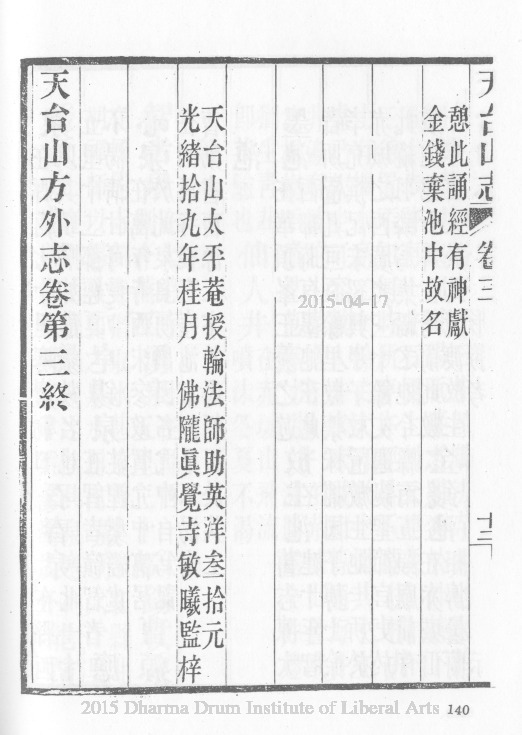 天台山志 卷三 十三
憩此誦經有神獻
金錢棄池中故名
天台山太平菴授輪法師助英洋叁拾元
光緒拾九年桂月 佛隴眞覺寺敏曦監梓
天台山方外志卷第三終
2015-04-17
2015 Dharma Drum Institute of Liberal Arts 140